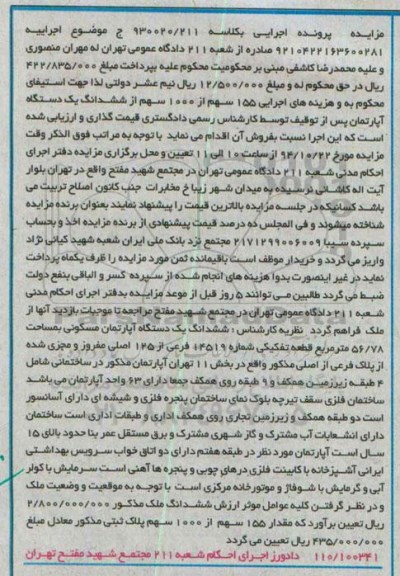 مزایده    پرونده اجرایی بکلاسه ۹۳۰۰۲۰/۲۱۱ ج موضوع اجراییه
۹۲۱۰۴۲۲۱۶۳۶۰۰۲۸۱ صادره از شعبه ۲۱۱ دادگاه عمومی تهران له مهران منصوری
و علیه محمدرضا کاشفی مبنی بر محکومیت محکوم علیه بپرداخت مبلغ ۴۲۲/۸۳۵/۰۰۰
ریال در حق محکوم له و مبلغ ۱۲/۵۰۰/۰۰۰ ریال نیم عشر دولتی لذا جهت استیفای
محکوم به و هزینه های اجرایی ۱۵۵ سهم از ۱۰۰۰ سهم از ششدانگ یک دستگاه
آپارتمان پس از توقیف توسط کارشناس رسمی دادگستری قیمت گذاری و ارزیابی شده
است که این اجرا نسبت بفروش آن اقدام می نماید با توجه به مراتب فوق الذکر وقت
مزایده مورخ ۹۴/۱۰/۲۲ از ساعت ۱۰ الی ۱۱ تعیین و محل برگزاری مزایده دفتر اجرای
احکام مدنی شعبه ۲۱۱ دادگاه عمومی تهران در مجتمع شهید مفتح واقع در تهران بلوار
آیت اله کاشانی نرسیده به میدان شهر زیبا خ مخابرات جنب کانون اصلاح تربیت می
باشد کسانیکه در جلسه مزایده بالاترین قیمت را پیشنهاد نمایند بعنوان برنده مزایده
شناخته میشوند و فی المجلس ده درصد قیمت پیشنهادی از برنده مزایده اخذ و بحساب
سپرده سیبا ۲۱۷۱۲۹۹۰۰۶۰۰۹ مجتمع نزد بانک ملی ایران شعبه شهید کیانی نژاد
واریز می گردد و خریدار موظف است باقیمانده ثمن مورد مزایده را ظرف یکماه پرداخت
نماید در غیر اینصورت بدوا هزینه های انجام شده از سپرده کسر و الباقی بنفع دولت
ضبط می گردد طالبین می توانند ۵ روز قبل از موعد مزایده بدفتر اجرای احکام مدنی
شعبه ۲۱۱ دادگاه عمومی تهران در مجتمع شهید مفتح مراجعه تا موجبات بازدید آنها از
ملک فراهم گردد نظریه کارشناس : ششدانگ یک دستگاه آپارتمان مسکونی بمساحت
۵۶/۷۸ مترمربع قطعه تفکیکی شماره ۱۴۵۱۹ فرعی از ۱۲۵ اصلی مفروز و مجزی شده
از پلاک فرعی از اصلی مذکور واقع در بخش ۱۱ تهران آپارتمان مذکور در ساختمانی شامل
۴ طبقه زیرزمین همکف و ۹ طبقه روی همکف جمعا دارای ۶۳ واحد آپارتمان می باشد
ساختمان فلزی سقف تیرچه بلوک نمای ساختمان پنجره فلزی و شیشه ای دارای آسانسور
است دو طبقه همکف و زیرزمین تجاری روی همکف اداری و طبقات اداری است ساختمان
دارای انشعابات آب مشترک و گاز شهری مشترک و برق مستقل عمر بنا حدود بالای ۱۵
سال است آپارتمان مورد نظر در طبقه هفتم دارای دو اتاق خواب سرویس بهداشتی
ایرانی آشپزخانه با کابینت فلزی درهای چوبی و پنجره ها آهنی است سرمایش با کولر
آبی و گرمایش با شوفاژ و موتورخانه مرکزی است با توجه به موقعیت و وضعیت ملک
و در نظر گرفتن کلیه عوامل موثر ارزش ششدانگ ملک مذکور ۲/۸۰۰/۰۰۰/۰۰۰
ریال تعیین برآورد که مقدار ۱۵۵ سهم از ۱۰۰۰ سهم پلاک ثبتی مذکور معادل مبلغ
۴۳۵/۰۰۰/۰۰۰ ریال تعیین می گردد
۱۱۰/۱۰۰۳۴۱    دادورز اجرای احکام شعبه ۲۱۱ مجتمع شهید مفتح تهران